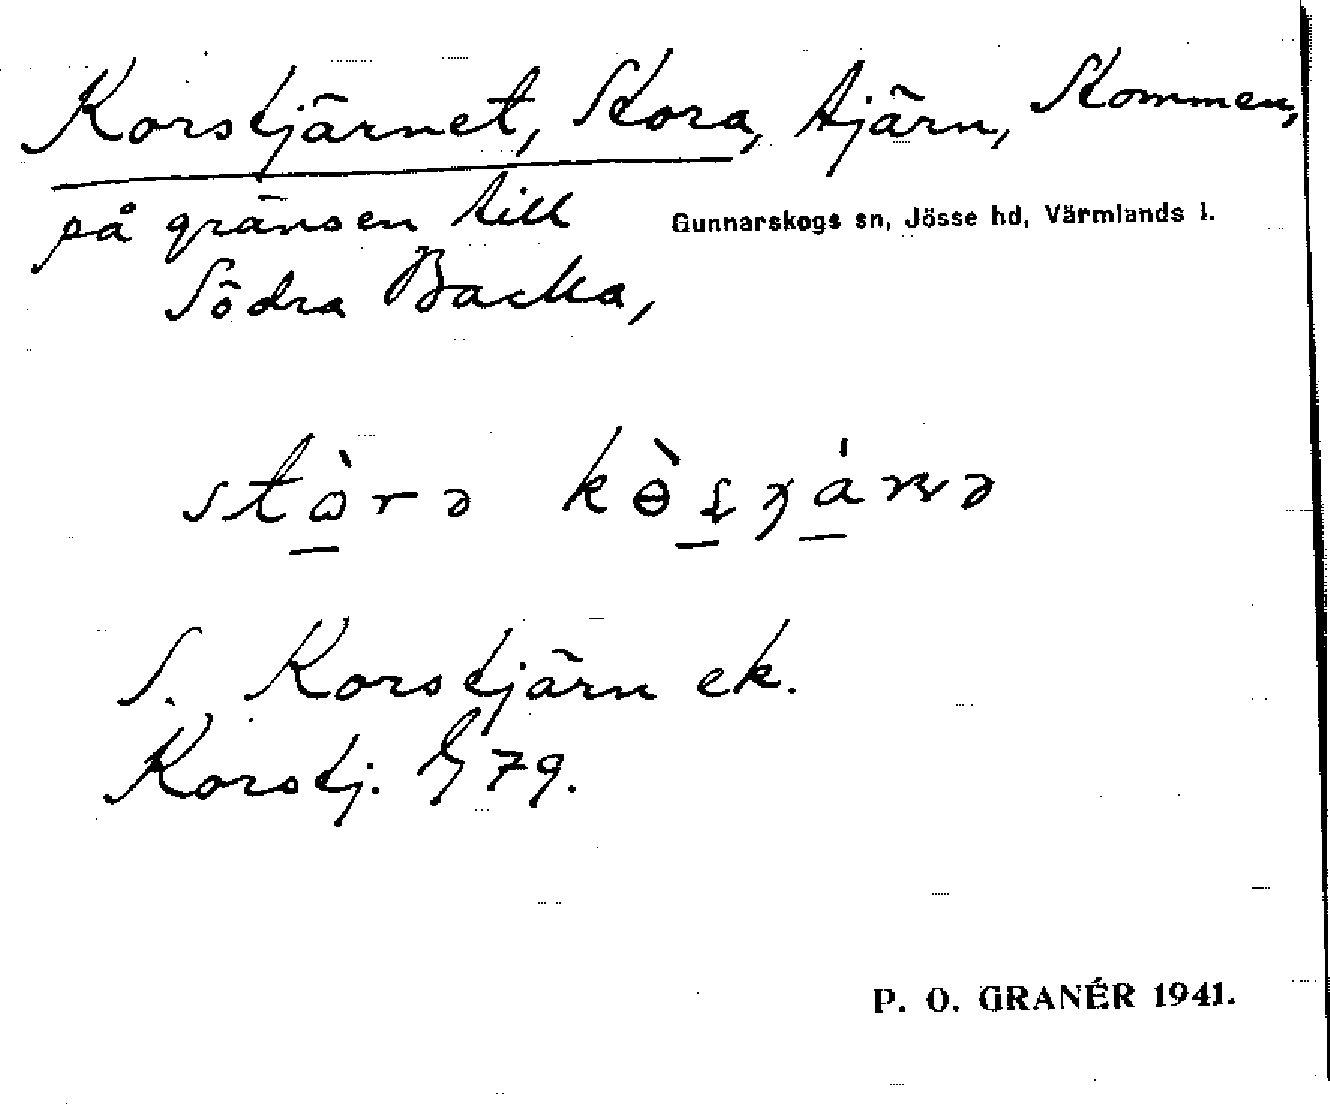 Korstjärnet, Stora, tjärn, Skommen,
på gränsen till
Gunnarskogs sn, Jösse hd, Värmlands l.
Södra Backa,
S. Korstjärn ek.
Korstj. G 79.
P. O. GRANÉR 1941.